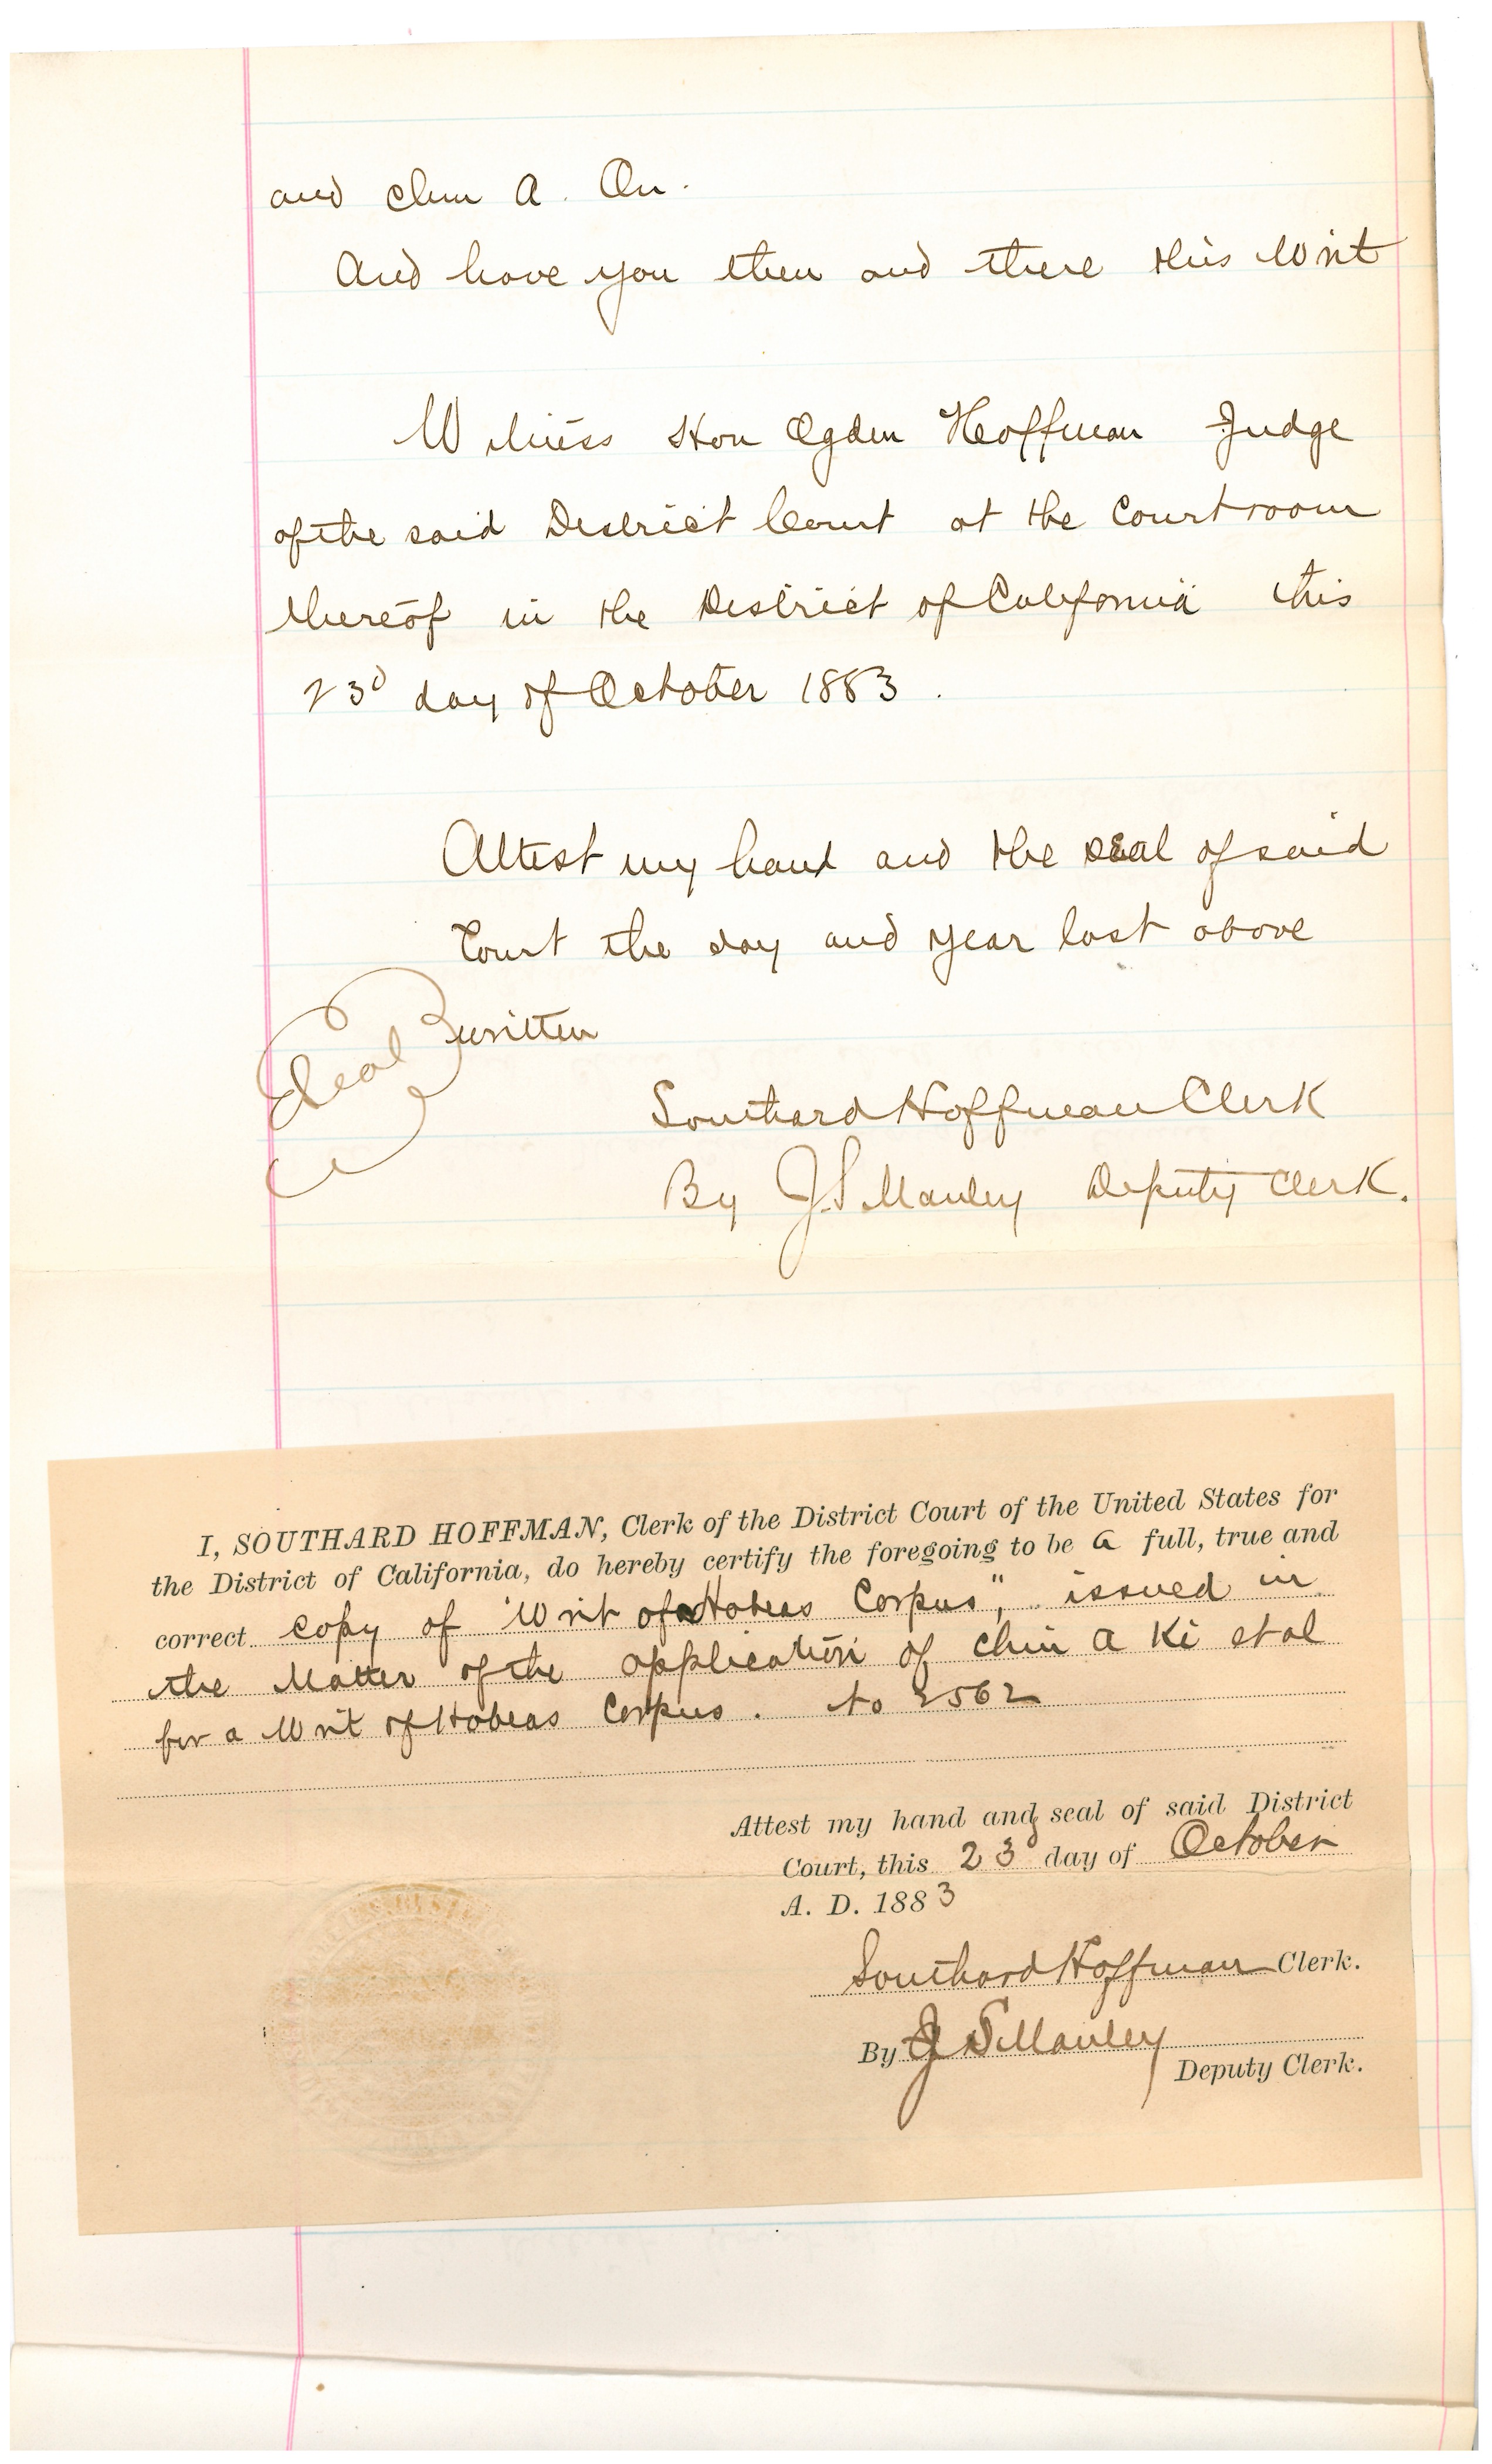 and Chin A. On.
And have you then and there this Writ
Witness Hon Ogden Hoffman Judge
of the said District Court at the Courtroom
thereof in the District of California this
23d day of October 1883.
Attest my hand and the seal of said
Court the day and year last above
Seal written
Southard Hoffman Clerk
By J. S. Manley Deputy Clerk.
I, SOUTHARD HOFFMAN, Clerk of the District Court of the United States for
the District of California, do hereby certify the foregoing to be a full, true and
correct copy of "Writ of Habeas Corpus", issued in
the Matter of the application of Chin A Ki et al
for a Writ of Habeas Corpus. No 2562
Attest my hand and seal of said District
Court, this 23d day of October
A. D. 1883
Southard Hoffman Clerk.
By J S Manley
Deputy Clerk.